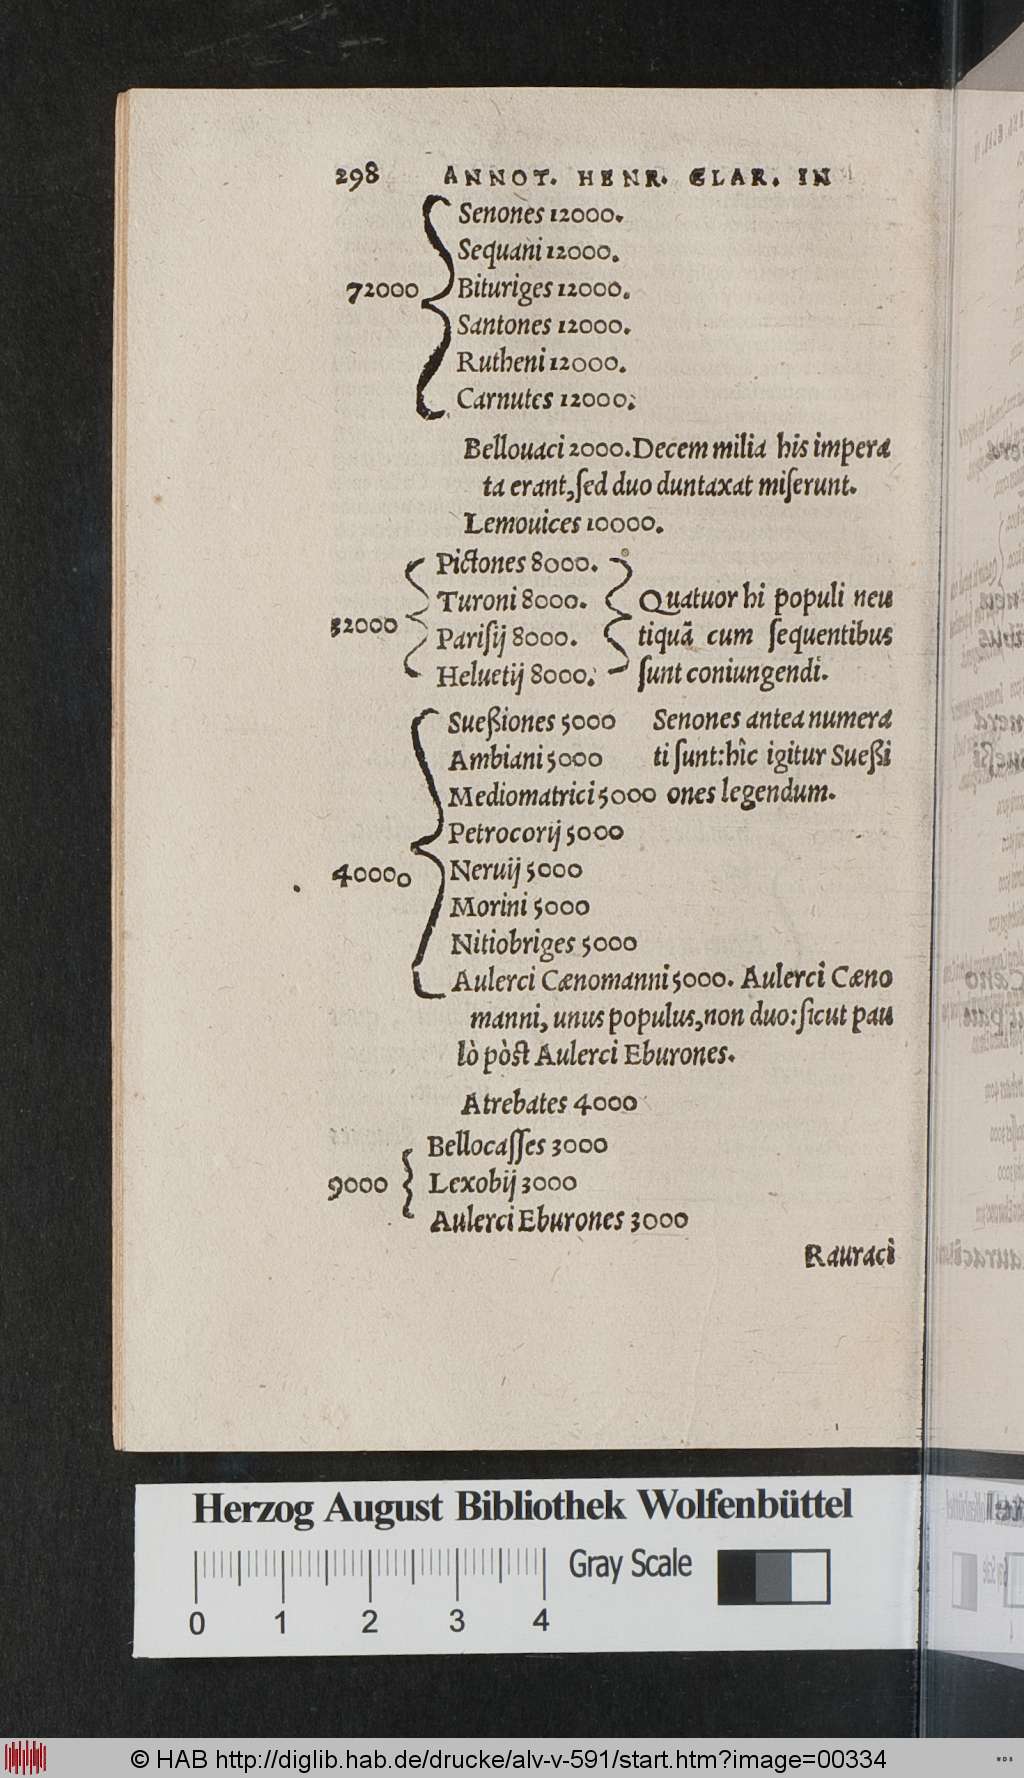 298 ANNOT. HENR. GLAR. IN
Senones 12000.
Sequani 12000.
72000 Bituriges 12000.
Santones 12000.
Rutheni 12000.
Carnutes 12000.
Bellouaci 2000. Decem milia his impera
ta erant, ſed duo duntaxat miſerunt.
Lemouices 10000.
Pictones 8000.
Turoni 8000. Quatuor hi populi neu
32000 Pariſij 8000. tiquã cum ſequentibus
Heluetij 8000. ſunt coniungendi.
Sueßiones 5000 Senones antea numera
Ambiani 5000 ti ſunt: hîc igitur Sueßi
Mediomatrici 5000 ones legendum.
Petrocorij 5000
40000 Neruij 5000
Morini 5000
Nitiobriges 5000
Aulerci Cænomanni 5000. Aulerci Cæno
manni, unus populus, non duo: ſicut pau
lò pòſt Aulerci Eburones.
Atrebates 4000
Bellocaſſes 3000
9000 Lexobij 3000
Aulerci Eburones 3000
Rauraci
Herzog August Bibliothek Wolfenbüttel
Gray Scale
0 1 2 3 4
© HAB http://diglib.hab.de/drucke/alv-v-591/start.htm?image=00334